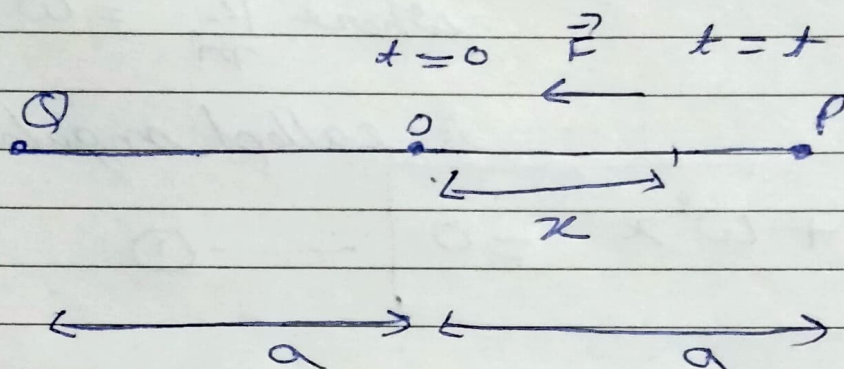 t = 0 F⃗ t = t
Q O P
x
a a